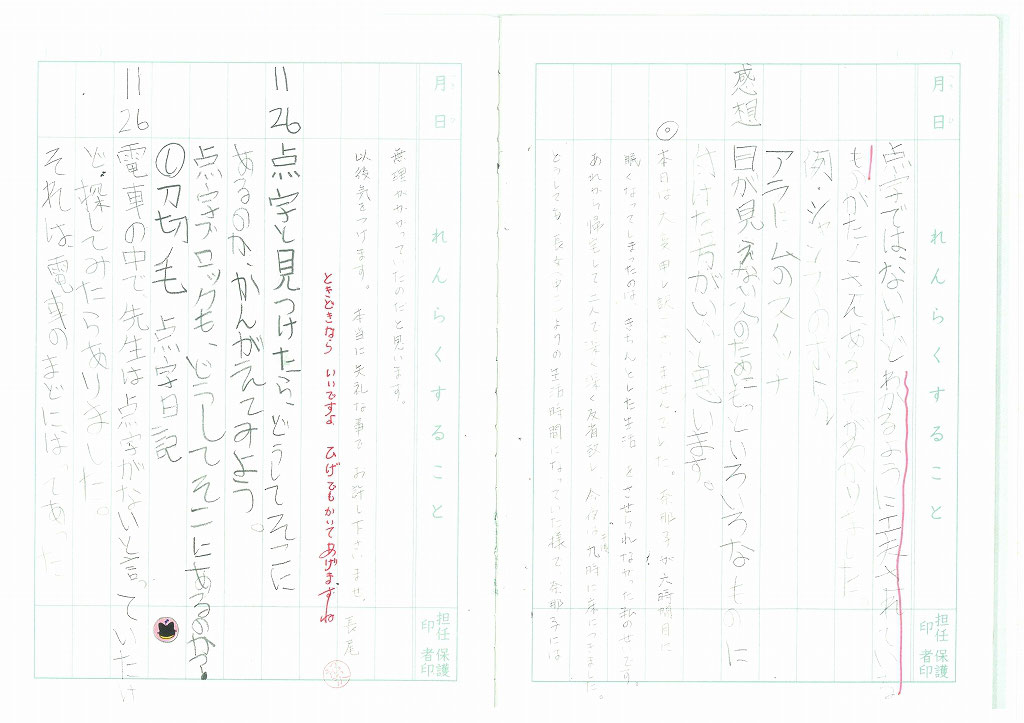 月 日 れんらくすること 担任印 保護者印
点字ではないけどわかるように工夫されている
ものがたくさんあることがわかりました。
例・シャンプーのボトル
アラームのスイッチ
感想 目が見えない人のためにもっといろいろなものに
付けた方がいいと思います。
本日は大変申し訳ございませんでした。奈那子が六時間目に
眠くなってしまったのは、きちんとした生活をさせられなかった私のせいです。
あれから帰宅して二人で深く深く反省致し、今夜は九時に床につきました。
どうしても長女ペースよりの生活時間になっていた様で奈那子には
月 日 れんらくすること 担任印 保護者印
無理がかかっていたのだと思います。
以後気をつけます。本当に失礼な事でお許し下さいませ。 長尾
ときどきなら いいですよ ひげでもかいてあげますね
11 26 点字を見つけたら、どうしてそこに
あるのか、かんがえてみよう。
点字ブロックも、どうしてそこにあるのか?
① 点字日記
11 26 電車の中で、先生は点字がないと言っていたけ
ど、探してみたらありました。
それは電車のまどにはってあった